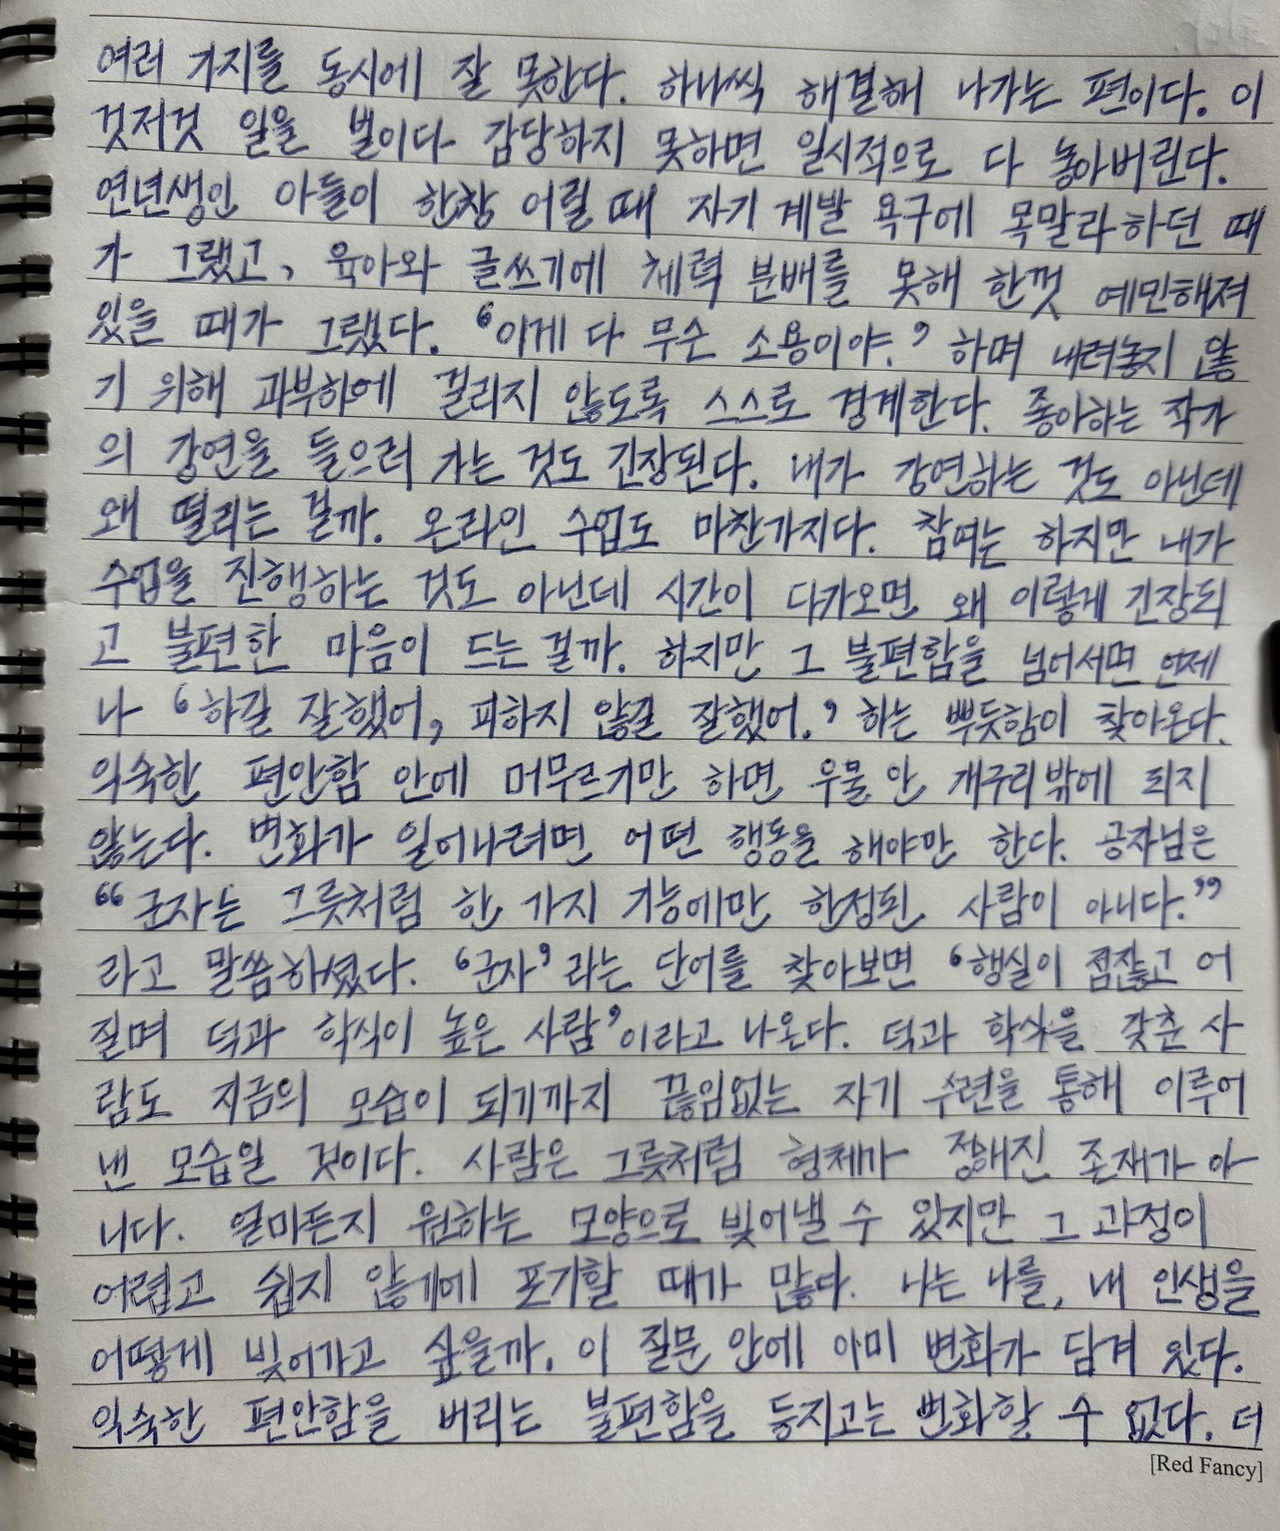 여러 가지를 동시에 잘 못한다. 하나씩 해결해 나가는 편이다. 이
것저것 일을 벌이다 감당하지 못하면 일시적으로 다 놓아버린다.
연년생인 아들이 한창 어릴 때 자기 계발 욕구에 목말라하던 때
가 그랬고, 육아와 글쓰기에 체력 분배를 못해 한껏 예민해져
있을 때가 그랬다. ‘이게 다 무슨 소용이야.’ 하며 내려놓지 않
기 위해 과부하에 걸리지 않도록 스스로 경계한다. 좋아하는 작가
의 강연을 들으러 가는 것도 긴장된다. 내가 강연하는 것도 아닌데
왜 떨리는 걸까. 온라인 수업도 마찬가지다. 참여는 하지만 내가
수업을 진행하는 것도 아닌데 시간이 다가오면 왜 이렇게 긴장되
고 불편한 마음이 드는 걸까. 하지만 그 불편함을 넘어서면 언제
나 ‘하길 잘했어, 피하지 않길 잘했어.’ 하는 뿌듯함이 찾아온다.
익숙한 편안함 안에 머무르기만 하면 우물 안 개구리밖에 되지
않는다. 변화가 일어나려면 어떤 행동을 해야만 한다. 공자님은
“군자는 그릇처럼 한 가지 기능에만 한정된 사람이 아니다.”
라고 말씀하셨다. ‘군자’라는 단어를 찾아보면 ‘행실이 점잖고 어
질며 덕과 학식이 높은 사람’이라고 나온다. 덕과 학식을 갖춘 사
람도 지금의 모습이 되기까지 끊임없는 자기 수련을 통해 이루어
낸 모습일 것이다. 사람은 그릇처럼 형체가 정해진 존재가 아
니다. 얼마든지 원하는 모양으로 빚어낼 수 있지만 그 과정이
어렵고 쉽지 않기에 포기할 때가 많다. 나는 나를, 내 인생을
어떻게 빚어가고 싶을까. 이 질문 안에 이미 변화가 담겨 있다.
익숙한 편안함을 버리는 불편함을 등지고는 변화할 수 없다. 더
[Red Fancy]